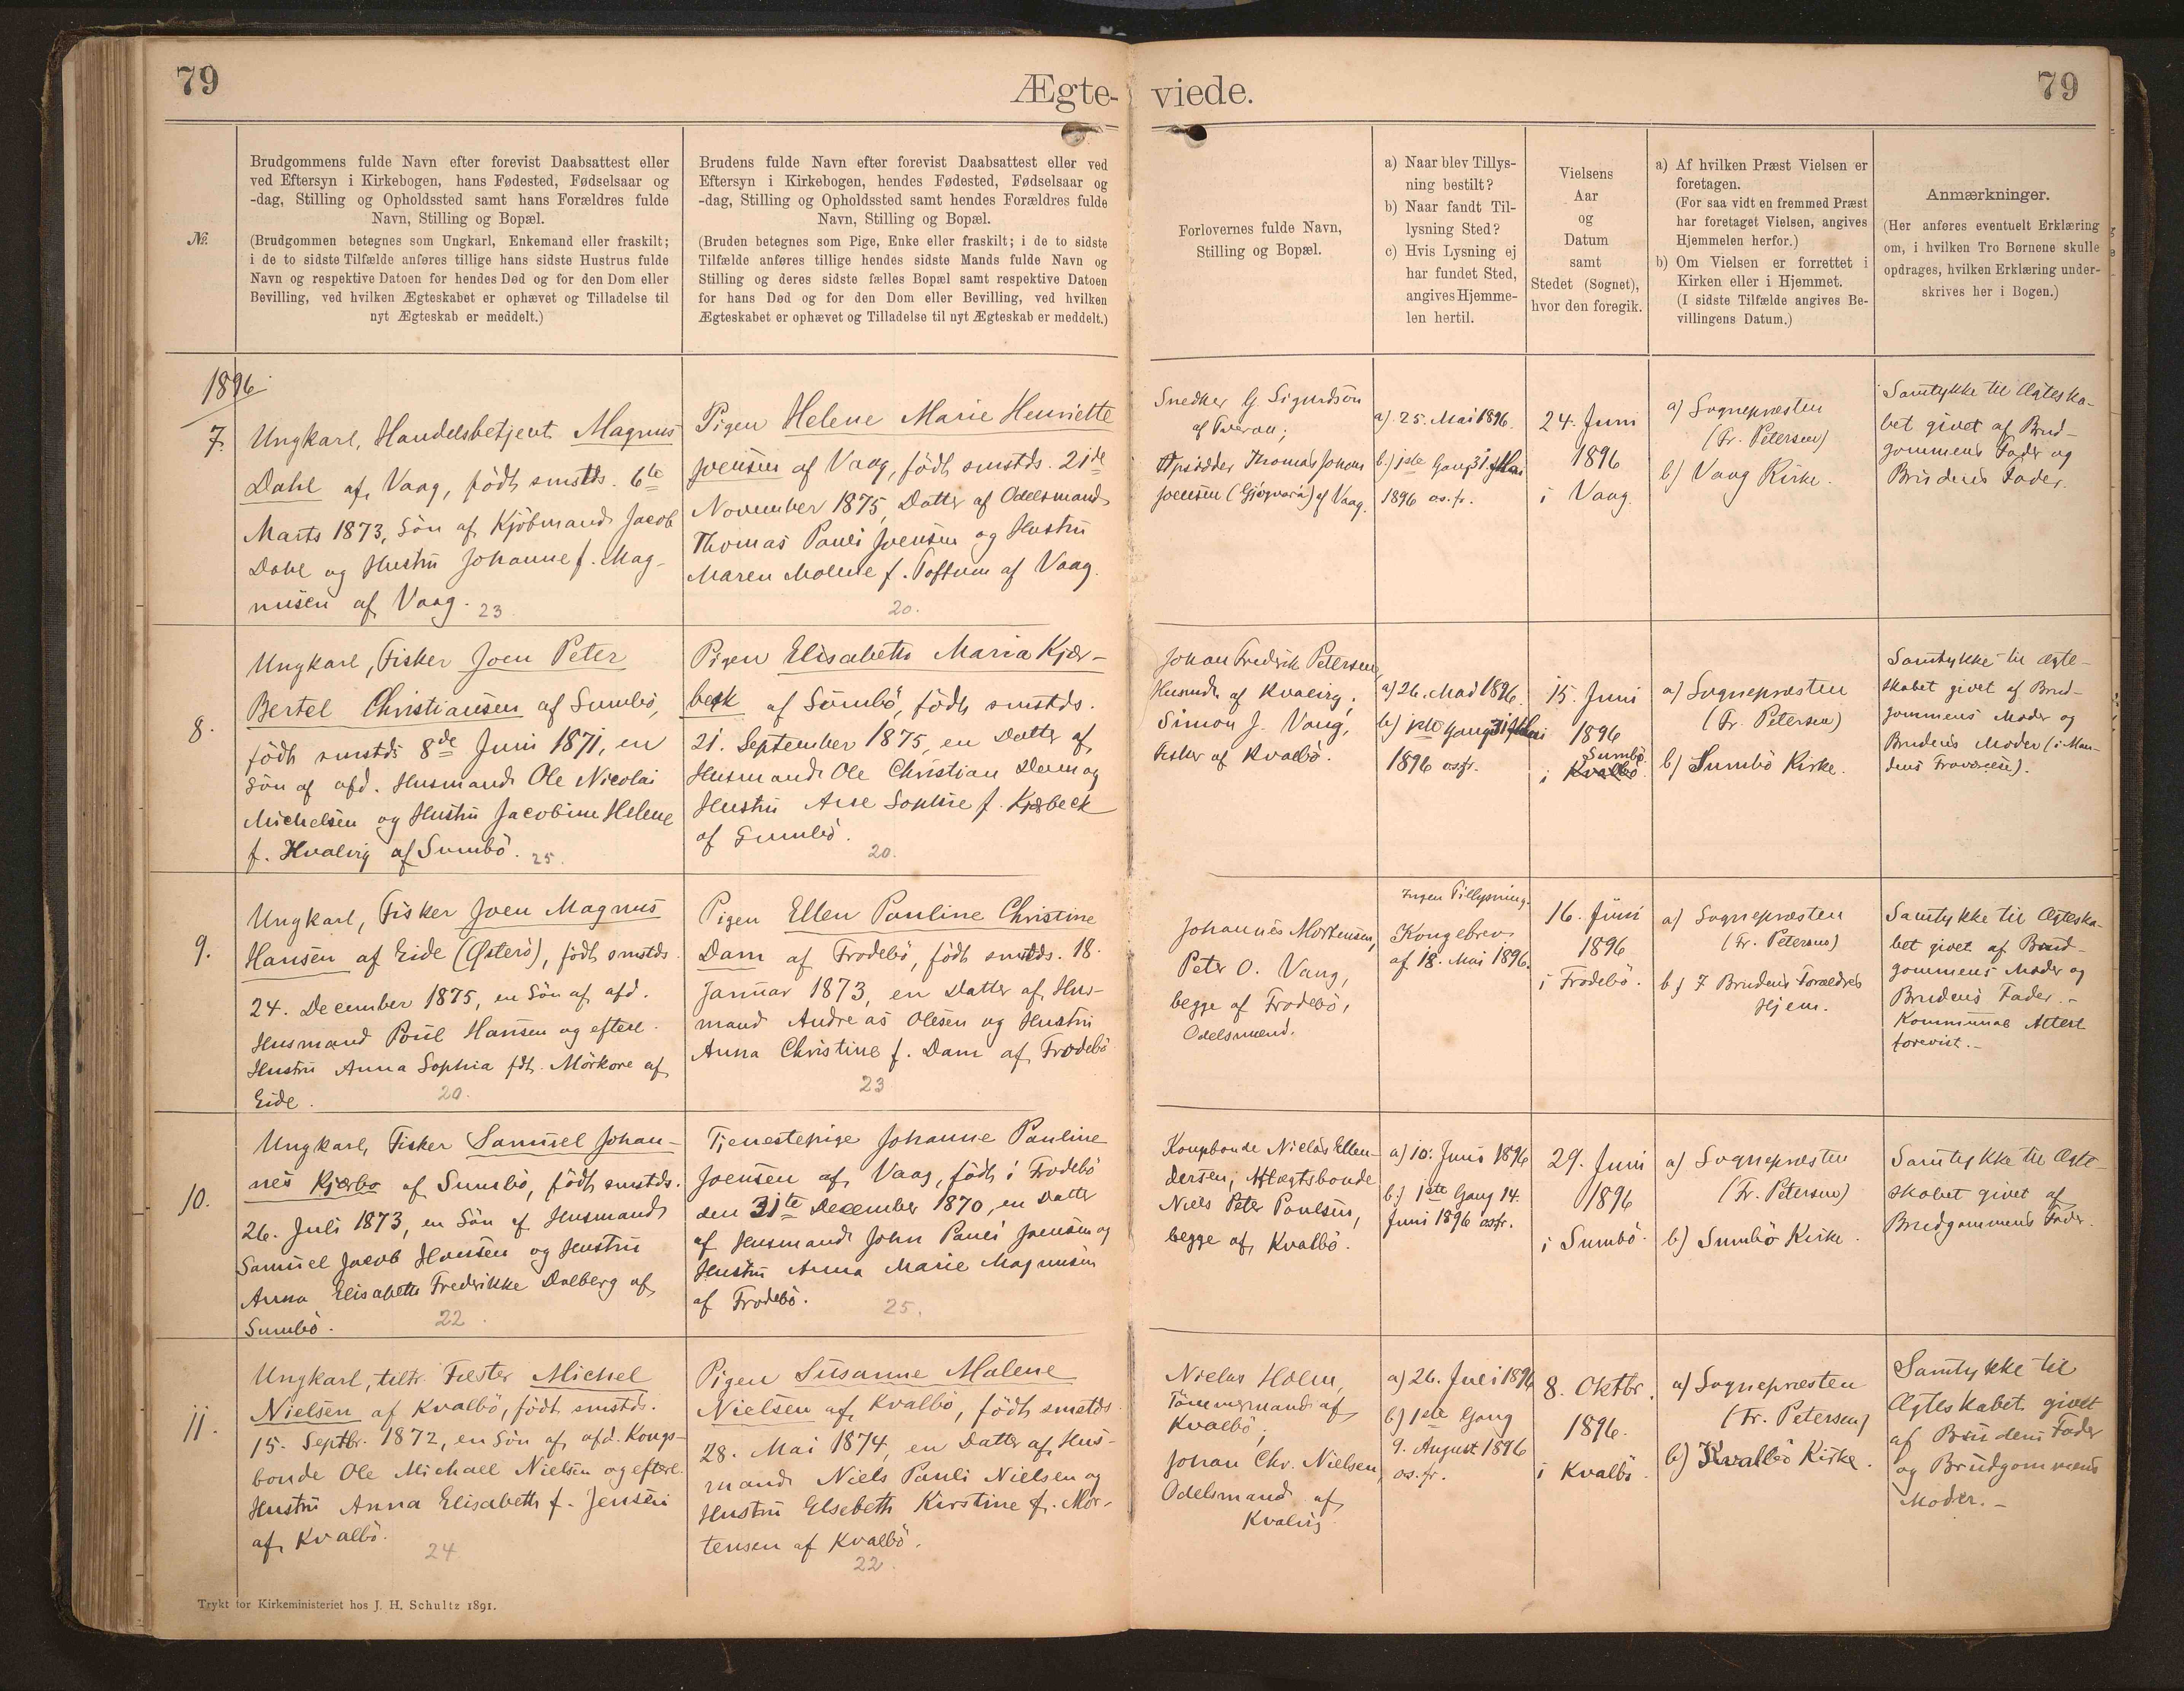 79
Ægte-
viede.
79
No.
Brudgommens fulde Navn efter forevist Daabsattest eller
ved Eftersyn i Kirkebogen, hans Fødested, Fødselsaar og
-dag, Stilling og Opholdssted samt hans Forældres fulde
Navn, Stilling og Bopæl.
(Brudgommen betegnes som Ungkarl, Enkemand eller fraskilt;
i de to sidste Tilfælde anføres tillige hans sidste Hustrus fulde
Navn og respektive Datoen for hendes Død og for den Dom eller
Bevilling, ved hvilken Ægteskabet er ophævet og Tilladelse til
nyt Ægteskab er meddelt.)
Brudens fulde Navn efter forevist Daabsattest eller ved
Eftersyn i Kirkebogen, hendes Fødested, Fødselsaar og
-dag, Stilling og Opholdssted samt hendes Forældres fulde
Navn, Stilling og Bopæl.
(Bruden betegnes som Pige, Enke eller fraskilt; i de to sidste
Tilfælde anføres tillige hendes sidste Mands fulde Navn og
Stilling og deres sidste fælles Bopæl samt respektive Datoen
for hans Død og for den Dom eller Bevilling, ved hvilken
Ægteskabet er ophævet og Tilladelse til nyt Ægteskab er meddelt.)
Forlovernes fulde Navn,
Stilling og Bopæl.
a) Naar blev Tillys-
ning bestilt?
b) Naar fandt Til-
lysning Sted?
c) Hvis Lysning ej
har fundet Sted,
angives Hjemme-
len hertil.
Vielsens
Aar
og
Datum
samt
Stedet (Sognet),
hvor den foregik.
a) Af hvilken Præst Vielsen er
foretagen.
(For saa vidt en fremmed Præst
har foretaget Vielsen, angives
Hjemmelen herfor.)
b) Om Vielsen er forrettet i
Kirken eller i Hjemmet.
(I sidste Tilfælde angives Be-
villingens Datum.)
Anmærkninger.
(Her anføres eventuelt Erklæring
om, i hvilken Tro Børnene skulle
opdrages, hvilken Erklæring under-
skrives her i Bogen.)
1896
7.
Ungkarl, Handelsbetjent Magnus
Dahl af Vaag, födt smstds. 6te
Marts 1873, Sön af Kjöbmand Jacob
Dahl og Hustru Johanne f. Mag-
nusen af Vaag. 23
Pigen Helene Marie Henriette
Joensen af Vaag, födt smstds. 21de
November 1875, Datter af Odelsmand
Thomas Pauli Joensen og Hustru
Maren Malene f. Toftum af Vaag.
20.
Snedker G. Sigurdson
af Tveraa;
Thomas Johan
Joensen (Gjögvará) af Vaag.
a). 25. Mai 1896.
b.) 1ste Gang 31. Mai
1896 os. fr.
24. Juni
1896
i Vaag.
a) Sognepræsten
(Fr. Petersen)
b) Vaag Kirke.
Samtykke til Ægteska-
bet givet af Brud-
gommens Fader og
Brudens Fader.
8.
Ungkarl, Fisker Joen Peter
Bertel Christiansen af Sumbö,
födt smstds 8de Juni 1871, en
Sön af afd. Husmand Ole Nicolai
Michelsen og Hustru Jacobine Helene
f. Hvalvig af Sumbö. 25.
Pigen Elisabeth Maria Kjær-
beck af Sumbö, födt smstds.
21. September 1875, en Datter af
Husmand Ole Christian og
Hustru Ane Sophie f. Kjærbeck
af Sumbö.
20.
Johan Fredrik Petersen,
Husmd. af Kvalvig;
Simon J. Vang,
Fisker af Kvalbö.
a) 26. Mai 1896.
b) 1ste Gang 31 Mai
1896 os. fr.
15. Juni
1896
Sumbö
i Kvalbö.
a) Sognepræsten
(Fr. Petersen)
b) Sumbö Kirke.
Samtykke til Ægte-
skabet givet af Brud-
gommens Moder og
Brudens Moder (i Man-
dens Fraværelse).
9.
Ungkarl, Fisker Joen Magnus
Hansen af Eide (Österö), födt smstds.
24. December 1875, en Sön af afd.
Husmand Poul Hansen og efterl.
Hustru Anna Sophia fdt. Mörkore af
Eide.
20.
Pigen Ellen Pauline Christine
Dam af Frodebö, födt smstds. 18.
Januar 1873, en Datter af Hus-
mand Andreas Olesen og Hustru
Anna Christine f. Dam af Frodebö
23
Johannes Mortensen,
Peter O. Vang,
begge af Frodebö,
Odelsmænd.
Ingen Tillysning.
Kongebrev
af 18. Mai 1896.
16. Juni
1896
i Frodebö.
a) Sognepræsten
(Fr. Petersen)
b) I Brudens Forældres
Hjem.
Samtykke til Ægteska-
bet givet af Brud-
gommens Moder og
Brudens Fader. -
Kommunal Attest
forevist. -
10.
Ungkarl, Fisker Samuel Johan-
nes Kjærbo af Sumbö, födt smstds.
26. Juli 1873, en Sön af Husmand
Samuel Jacob Hansen og Hustru
Anna Elisabeth Fredrikke Dalberg af
Sumbö.
22.
Tjenestepige Johanne Pauline
Joensen af Vaag, födt i Frodebö
den 31te December 1870, en Datter
af Husmand John Pauli Joensen og
Hustru Anna Marie Magnusen
af Frodebö.
25.
Kongsbonde Niclas Ellen-
dersen, Aftægtsbonde
Niels Peter Poulsen,
begge af Kvalbö.
a) 10. Juni 1896
b.) 1ste Gang 14.
Juni 1896 os. fr.
29. Juni
1896
i Sumbö.
a) Sognepræsten
(Fr. Petersen)
b) Sumbö Kirke.
Samtykke til Ægte-
skabet givet af
Brudgommens Fader.
11.
Ungkarl, tiltr. Fæster Michel
Nielsen af Kvalbö, födt smstds.
15. Septbr. 1872, en Sön af afd. Kongs-
bonde Ole Michael Nielsen og efterl.
Hustru Anna Elisabeth f. Jensen
af Kvalbö.
24
Pigen Susanne Malene
Nielsen af Kvalbö, födt smstds.
28. Mai 1874, en Datter af Hus-
mand Niels Pauli Nielsen og
Hustru Elsebeth Kirstine f. Mor-
tensen af Kvalbö.
22.
Niclas Holm,
Tömmermand af
Kvalbö,
Johan Chr. Nielsen,
Odelsmand af
Kvalvig
a) 26. Juli 1896
b) 1ste Gang
9. August 1896
os. fr.
8. Oktbr.
1896.
i Kvalbö.
a) Sognepræsten
(Fr. Petersen)
b) Kvalbö Kirke.
Samtykke til
Ægteskabet givet
af Brudens Fader
og Brudgommens
Moder. -
Trykt for Kirkeministeriet hos J. H. Schultz 1891.